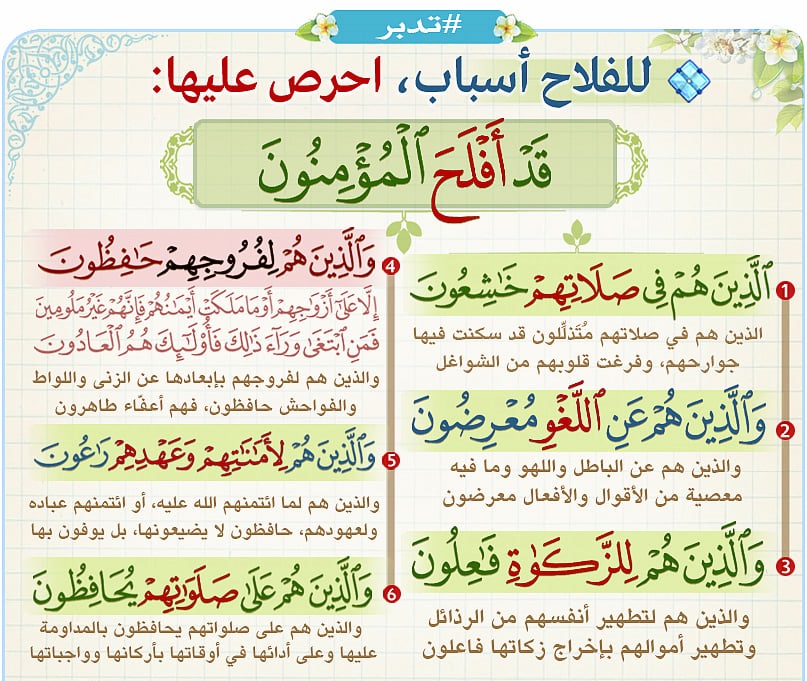 #تدبر
للفلاح أسباب، احرص عليها:
قَدْ أَفْلَحَ ٱلْمُؤْمِنُونَ
1 ٱلَّذِينَ هُمْ فِى صَلَاتِهِمْ خَـٰشِعُونَ
الذين هم في صلاتهم مُتَذلِّلون قد سكنت فيها
جوارحهم، وفرغت قلوبهم من الشواغل
2 وَٱلَّذِينَ هُمْ عَنِ ٱللَّغْوِ مُعْرِضُونَ
والذين هم عن الباطل واللهو وما فيه
معصية من الأقوال والأفعال معرضون
3 وَٱلَّذِينَ هُمْ لِلزَّكَوٰةِ فَـٰعِلُونَ
والذين هم لتطهير أنفسهم من الرذائل
وتطهير أموالهم بإخراج زكاتها فاعلون
4 وَٱلَّذِينَ هُمْ لِفُرُوجِهِمْ حَـٰفِظُونَ
إِلَّا عَلَىٰٓ أَزْوَٰجِهِمْ أَوْ مَا مَلَكَتْ أَيْمَـٰنُهُمْ فَإِنَّهُمْ غَيْرُ مَلُومِينَ
فَمَنِ ٱبْتَغَىٰ وَرَآءَ ذَٰلِكَ فَأُو۟لَـٰٓئِكَ هُمُ ٱلْعَادُونَ
والذين هم لفروجهم بإبعادها عن الزنى واللواط
والفواحش حافظون، فهم أعفّاء طاهرون
5 وَٱلَّذِينَ هُمْ لِأَمَـٰنَـٰتِهِمْ وَعَهْدِهِمْ رَٰعُونَ
والذين هم لما ائتمنهم الله عليه، أو ائتمنهم عباده
ولعهودهم، حافظون لا يضيعونها، بل يوفون بها
6 وَٱلَّذِينَ هُمْ عَلَىٰ صَلَوَٰتِهِمْ يُحَافِظُونَ
والذين هم على صلواتهم يحافظون بالمداومة
عليها وعلى أدائها في أوقاتها بأركانها وواجباتها